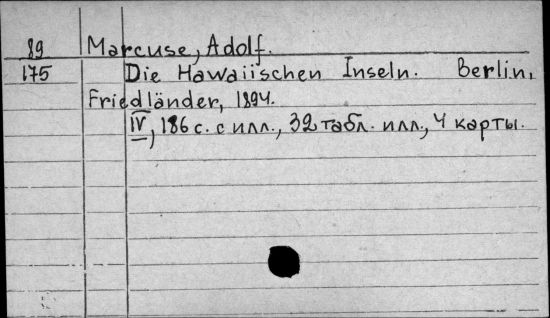 89 Marcuse, Adolf.
175 Die Hawaiischen Inseln. Berlin,
Friedländer, 1894.
IV, 186 с. с илл., 32 табл. илл., 4 карты.